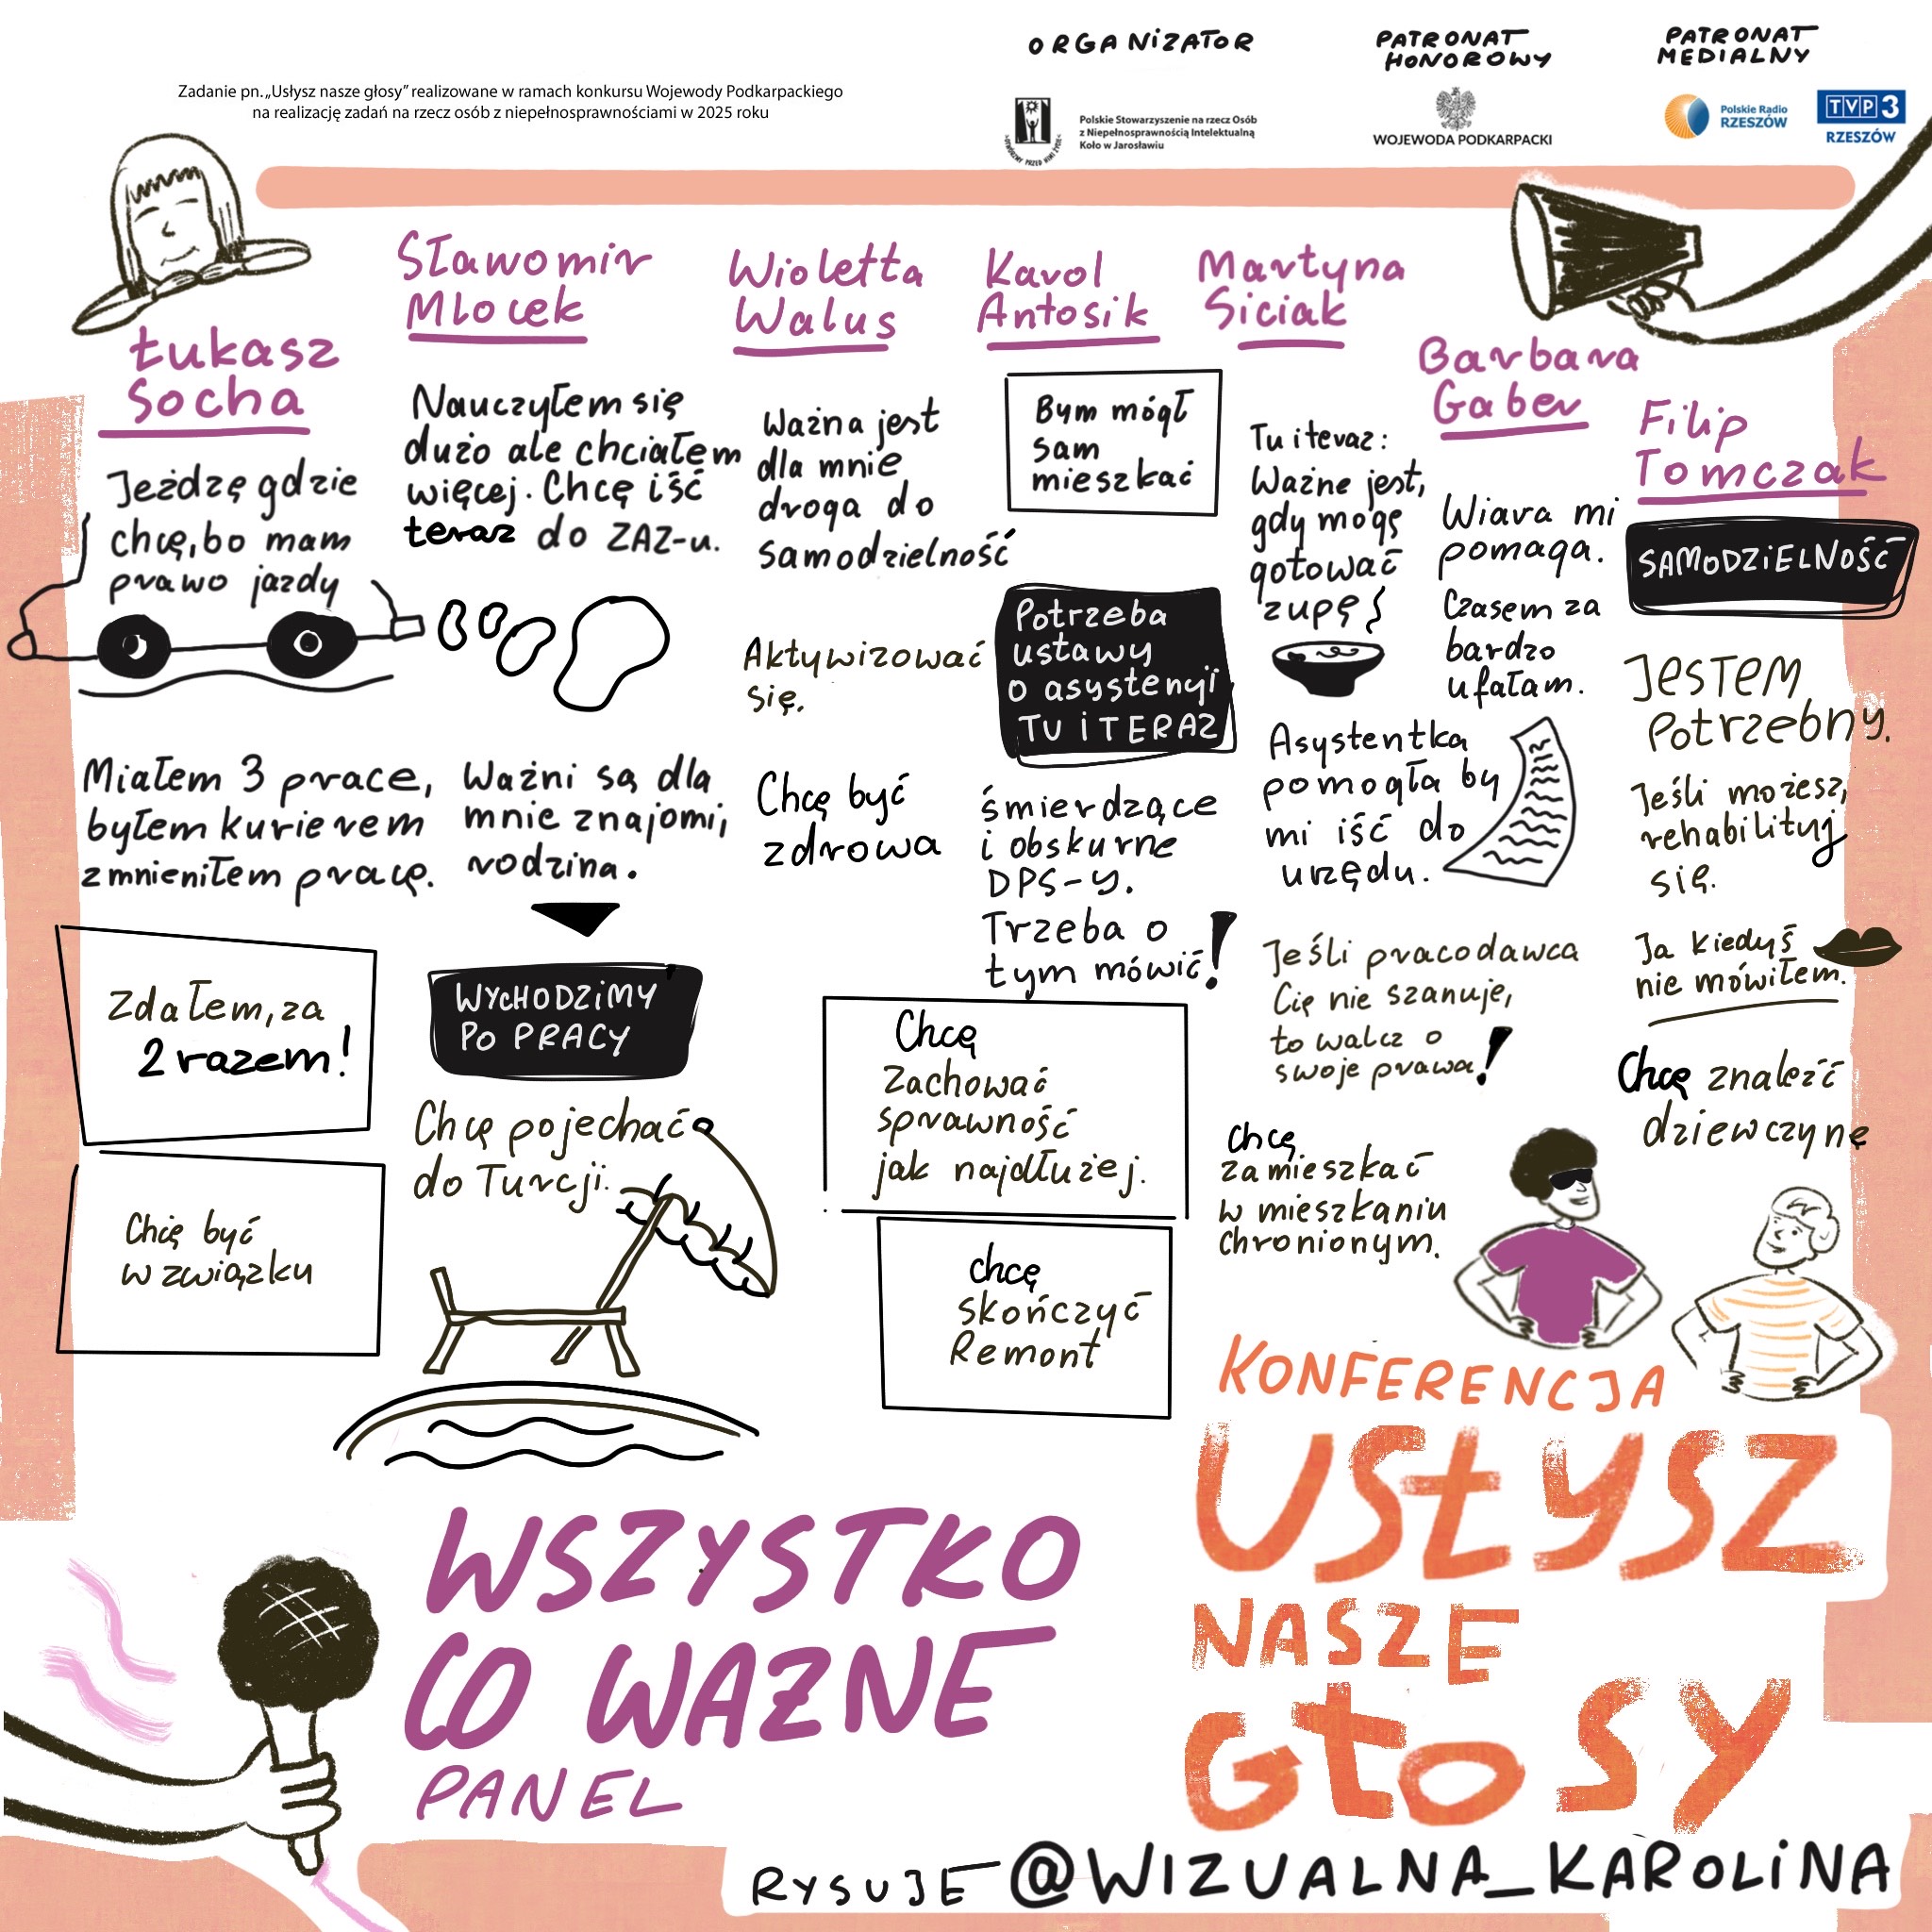 Zadanie pn. „Usłysz nasze głosy” realizowane w ramach konkursu Wojewody Podkarpackiego
na realizację zadań na rzecz osób z niepełnosprawnościami w 2025 roku
ORGANIZATOR
Polskie Stowarzyszenie na rzecz Osób
z Niepełnosprawnością Intelektualną
Koło w Jarosławiu
PATRONAT
HONOROWY
WOJEWODA PODKARPACKI
PATRONAT
MEDIALNY
Polskie Radio
RZESZÓW
TVP3
RZESZÓW
Łukasz
Socha
Jeżdżę gdzie
chcę, bo mam
prawo jazdy
Miałem 3 prace,
byłem kurierem
zmieniłem pracę.
Zdałem, za
2 razem!
Chcę być
w związku
Sławomir
Mlocek
Nauczyłem się
dużo ale chciałem
więcej. Chcę iść
teraz do ZAZ-u.
Ważni są dla
mnie znajomi,
rodzina.
WYCHODZIMY
PO PRACY
Chcę pojechać
do Turcji.
Wioletta
Walus
Ważna jest
dla mnie
droga do
samodzielność
Aktywizować
się.
Chcę być
zdrowa
Chcę
zachować
sprawność
jak najdłużej.
chcę
skończyć
Remont
Karol
Antosik
Bym mógł
sam
mieszkać
Potrzeba
ustawy
o asystencji
TU i TERAZ
śmierdzące
i obskurne
DPS-y.
Trzeba o
tym mówić!
Martyna
Siciak
Tu i teraz:
Ważne jest,
gdy mogę
gotować
zupę
Asystentka
pomogła by
mi iść do
urzędu.
Jeśli pracodawca
Cię nie szanuje,
to walcz o
swoje prawa!
Chcę
zamieszkać
w mieszkaniu
chronionym.
Barbara
Gaber
Wiara mi
pomaga.
Czasem za
bardzo
ufałam.
Filip
Tomczak
SAMODZIELNOŚĆ
JESTEM
Potrzebny.
Jeśli możesz,
rehabilituj
się.
Ja kiedyś
nie mówiłem.
Chcę znaleźć
dziewczynę
WSZYSTKO
CO WAŻNE
PANEL
KONFERENCJA
USŁYSZ
NASZE
GŁOSY
RYSUJE @WIZUALNA_KAROLINA